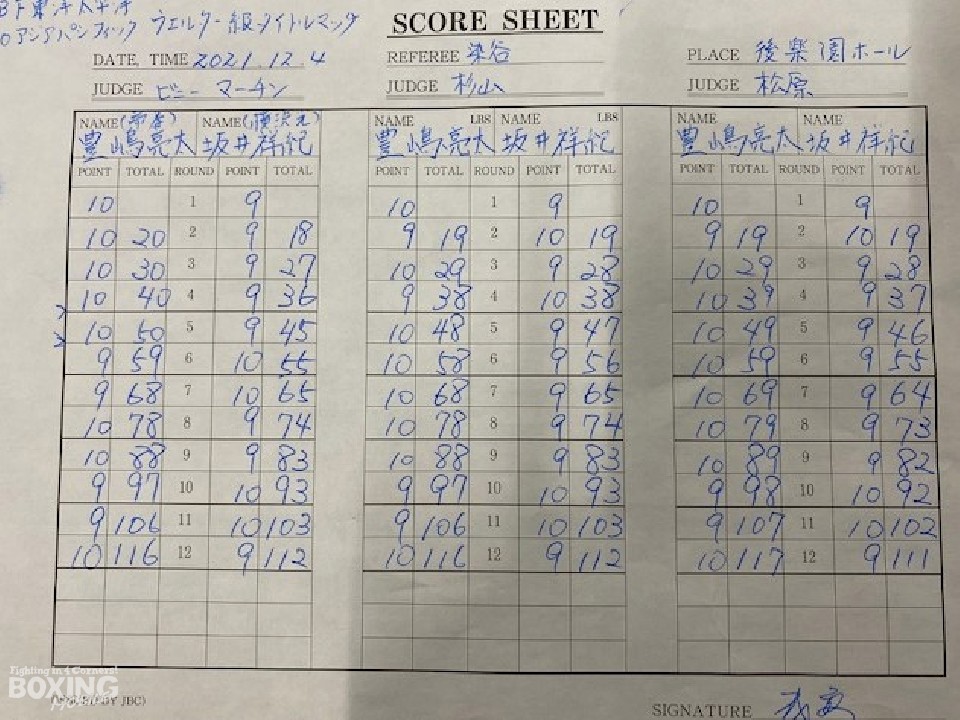 SCORE SHEET
ウエルター級タイトルマッチ
アジアパシフィック
DATE, TIME 2021.12.4
REFEREE 染谷
PLACE 後楽園ホール
JUDGE ビニー マーチン
JUDGE 杉山
JUDGE 松原
NAME (帝拳) NAME (横浜光)
NAME LBS NAME LBS
NAME NAME
豊嶋亮太 坂井祥紀
豊嶋亮太 坂井祥紀
豊嶋亮太 坂井祥紀
POINT TOTAL ROUND POINT TOTAL POINT TOTAL ROUND POINT TOTAL POINT TOTAL ROUND POINT TOTAL
10 1 9 10 1 9 10 1 9
10 20 2 9 18 9 19 2 10 19 9 19 2 10 19
10 30 3 9 27 10 29 3 9 28 10 29 3 9 28
10 40 4 9 36 9 38 4 10 38 10 39 4 9 37
10 50 5 9 45 10 48 5 9 47 10 49 5 9 46
9 59 6 10 55 10 58 6 9 56 10 59 6 9 55
9 68 7 10 65 10 68 7 9 65 10 69 7 9 64
10 78 8 9 74 10 78 8 9 74 10 79 8 9 73
10 88 9 9 83 10 88 9 9 83 10 89 9 9 82
9 97 10 10 93 9 97 10 10 93 9 98 10 10 92
9 106 11 10 103 9 106 11 10 103 9 107 11 10 102
10 116 12 9 112 10 116 12 9 112 10 117 12 9 111
Fighting in 4 Corners!
BOXING
BY JBC)
SIGNATURE